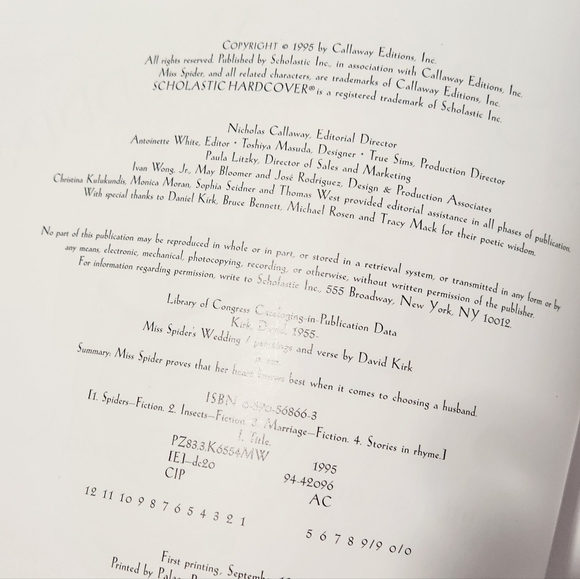 COPYRIGHT © 1995 by Callaway Editions, Inc.
All rights reserved. Published by Scholastic Inc., in association with Callaway Editions, Inc.
Miss Spider, and all related characters, are trademarks of Callaway Editions, Inc.
SCHOLASTIC HARDCOVER® is a registered trademark of Scholastic Inc.
Nicholas Callaway, Editorial Director
Antoinette White, Editor • Toshiya Masuda, Designer • True Sims, Production Director
Paula Litzky, Director of Sales and Marketing
Ivan Wong, Jr., May Bloomer and José Rodríguez, Design & Production Associates
Christina Kulukundis, Monica Moran, Sophia Seidner and Thomas West provided editorial assistance in all phases of publication.
With special thanks to Daniel Kirk, Bruce Bennett, Michael Rosen and Tracy Mack for their poetic wisdom.
No part of this publication may be reproduced in whole or in part, or stored in a retrieval system, or transmitted in any form or by
any means, electronic, mechanical, photocopying, recording, or otherwise, without written permission of the publisher.
For information regarding permission, write to Scholastic Inc., 555 Broadway, New York, NY 10012.
Library of Congress Cataloging-in-Publication Data
Kirk, David, 1955-
Miss Spider's Wedding / paintings and verse by David Kirk
Summary: Miss Spider proves that her heart knows best when it comes to choosing a husband.
ISBN 0-590-56866-3
[1. Spiders—Fiction. 2. Insects—Fiction. 2. Marriage—Fiction. 4. Stories in rhyme.]
I. Title.
PZ8.3.K6554MW 1995
[E]—dc20 94-42096
CIP AC
12 11 10 9 8 7 6 5 4 3 2 1 5 6 7 8 9/9 0/0
First printing,
Printed by